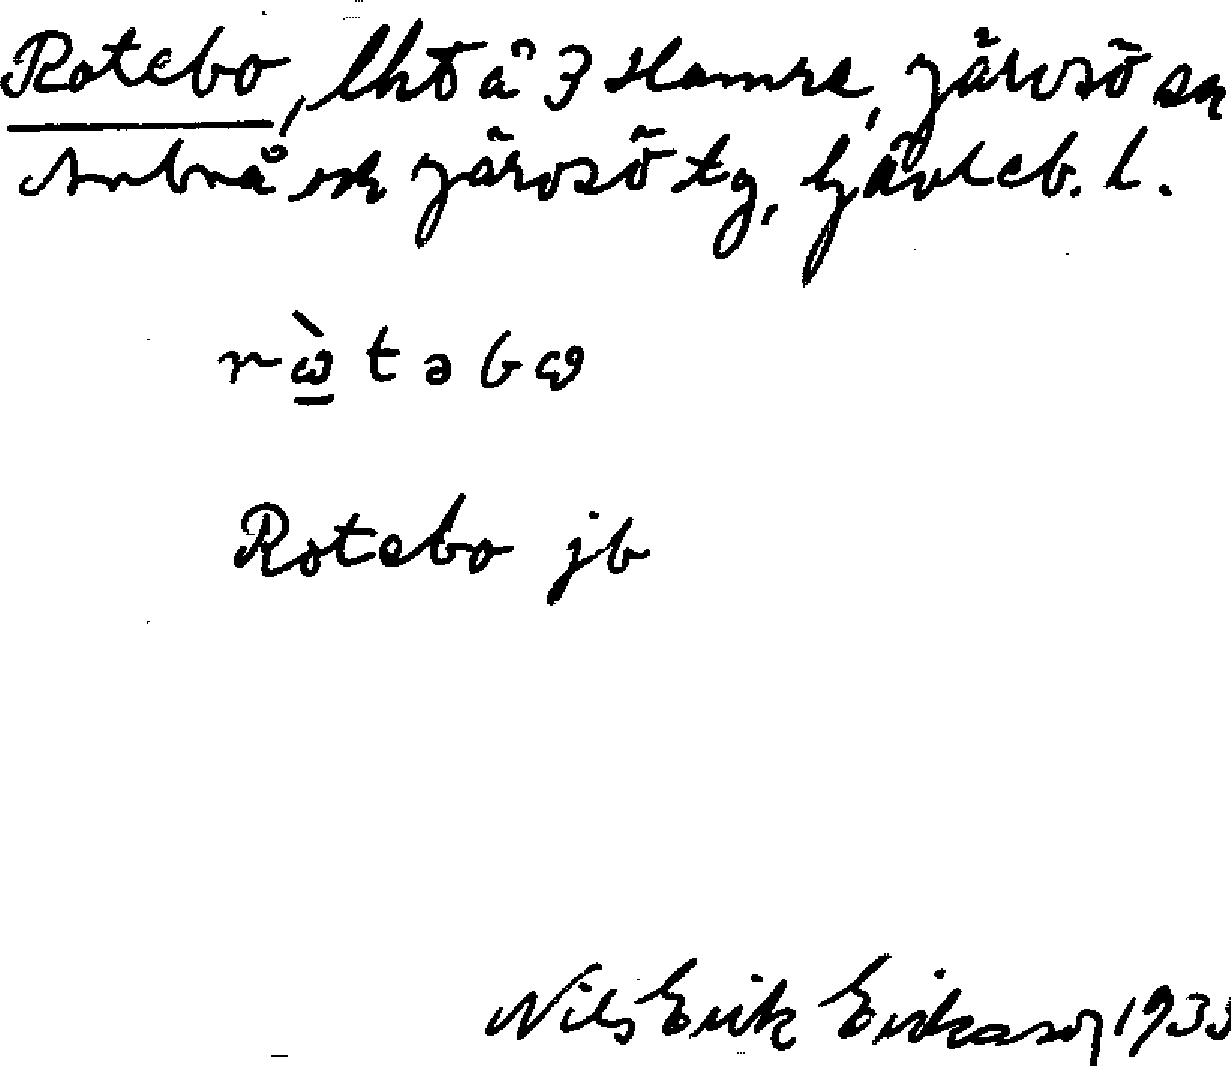 Rotebo, lht å 3 Hamre, Järvsö sn
Arbrå och Järvsö tg, Gävleb. l.
r ὼ t ə b ω
Rotebo jb
Nils Erik Erikson 1933